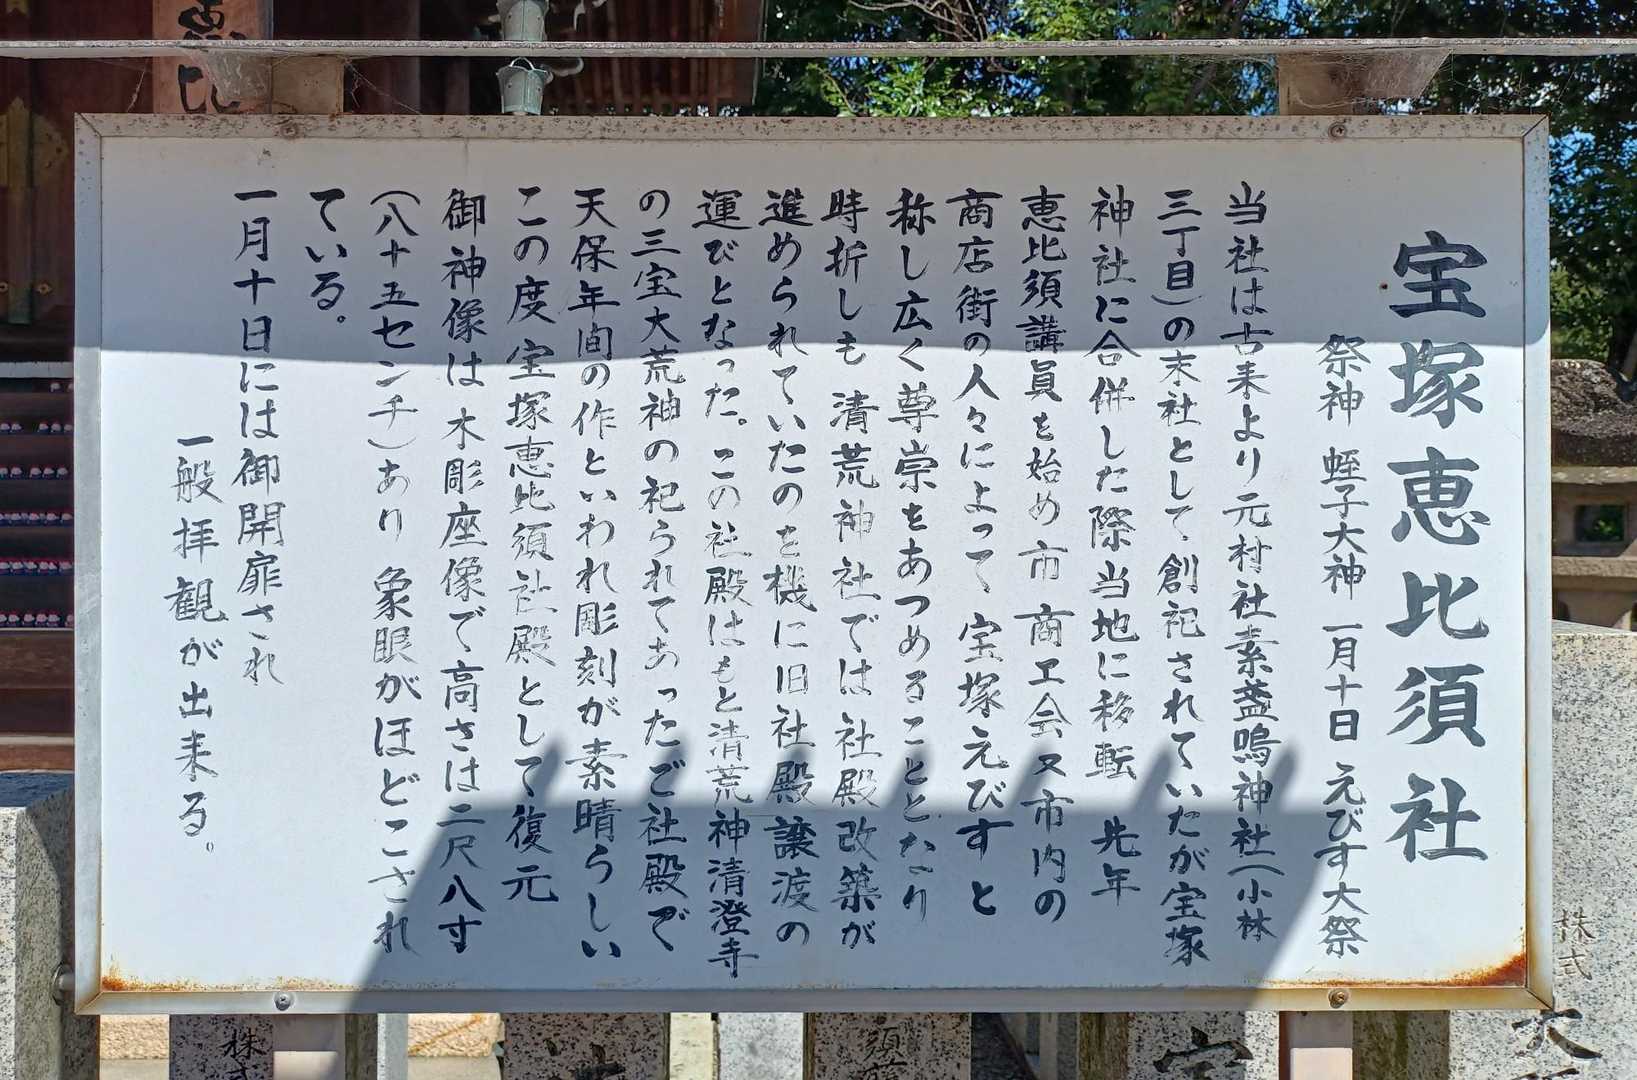 宝塚恵比須社
祭神 蛭子大神 一月十日 えびす大祭
当社は古来より元村社素盞嗚神社(小林
三丁目)の末社として創祀されていたが宝塚
神社に合併した際当地に移転 先年
恵比須講員を始め市商工会又市内の
商店街の人々によって宝塚えびすと
称し広く尊崇をあつめることとなり
時折しも清荒神社では社殿改築が
進められていたのを機に旧社殿譲渡の
運びとなった。この社殿はもと清荒神清澄寺
の三宝大荒神の祀られてあったご社殿で
天保年間の作といわれ彫刻が素晴らしい
この度宝塚恵比須社殿として復元
御神像は木彫座像で高さは二尺八寸
(八十五センチ)あり 象眼がほどこされ
ている。
一月十日には御開扉され
一般拝観が出来る。
株式
株式